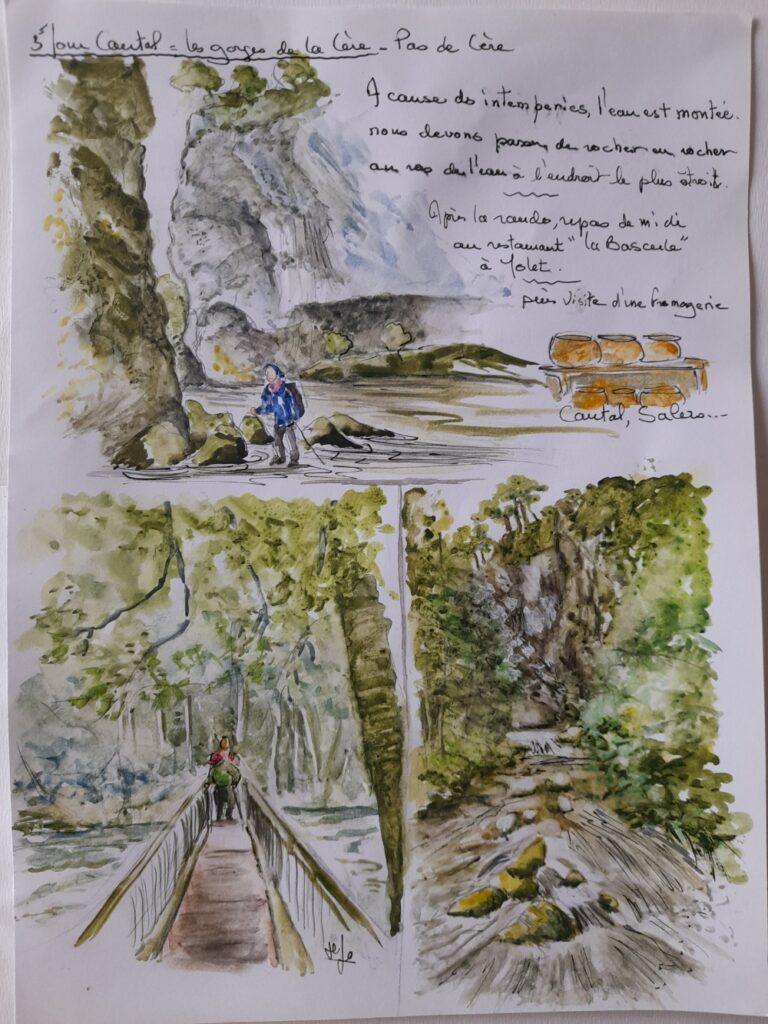 3e Jour Cantal = les gorges de la Cère - Pas de Cère
A cause des intemperies, l'eau est montée.
nous devons passer de rocher en rocher
au ras de l'eau à l'endroit le plus étroit.
Après la rando, repas de midi
au restaurant "la Bascule"
à Yolet.
puis visite d'une fromagerie
Cantal, Salers...